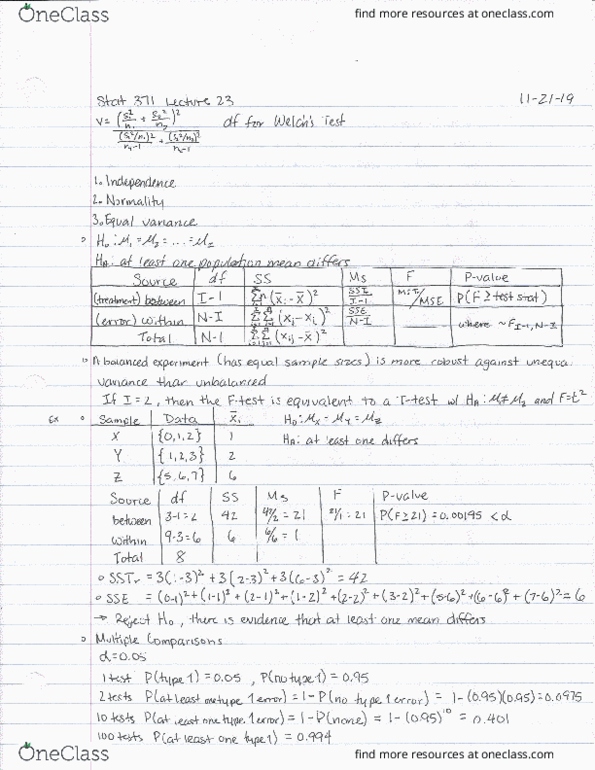 OneClass
find more resources at oneclass.com
Stat 371 Lecture 23 11-21-19
V = (S₁²/n₁ + S₂²/n₂)² / ((S₁²/n₁)²/n₁-1 + (S₂²/n₂)²/n₂-1) df for Welch's Test
1. Independence
2. Normality
3. Equal variance
H₀: μ₁ = μ₂ = ... = μ_I
H_A: at least one population mean differs
Source df SS MS F P-value
(treatment) between I-1 ΣΣ(x̄ᵢ-x̄)² SST/I-1 MST/MSE P(F ≥ test stat)
(error) within N-I ΣΣ(xᵢ-xᵢ)² SSE/N-I where ~F I-1, N-I
Total N-1 ΣΣ(xᵢⱼ-x̄)²
A balanced experiment (has equal sample sizes) is more robust against unequa
variance than unbalanced
If I = 2, then the F-test is equivalent to a T-test w/ H_A: μ₁≠μ₂ and F=t²
Ex Sample Data x̄ᵢ H₀: μ_X = μ_Y = μ_Z
X {0,1,2} 1 H_A: at least one differs
Y {1,2,3} 2
Z {5,6,7} 6
Source df SS MS F P-value
between 3-1=2 42 42/2 = 21 21/1 = 21 P(F≥21) = 0.00195 < α
within 9-3=6 6 6/6 = 1
Total 8
SSTr = 3(1-3)² + 3(2-3)² + 3(6-3)² = 42
SSE = (0-1)² + (1-1)² + (2-1)² + (1-2)² + (2-2)² + (3-2)² + (5-6)² + (6-6)² + (7-6)² = 6
→ Reject H₀, there is evidence that at least one mean differs
Multiple Comparisons
α=0.05
1 test P(type 1) = 0.05, P(no type 1) = 0.95
2 tests P(at least one type 1 error) = 1-P(no type 1 error) = 1-(0.95)(0.95) = 0.0975
10 tests P(at least one type 1 error) = 1-P(none) = 1-(0.95)¹⁰ = 0.401
100 tests P(at least one type 1) = 0.994
OneClass
find more resources at oneclass.com